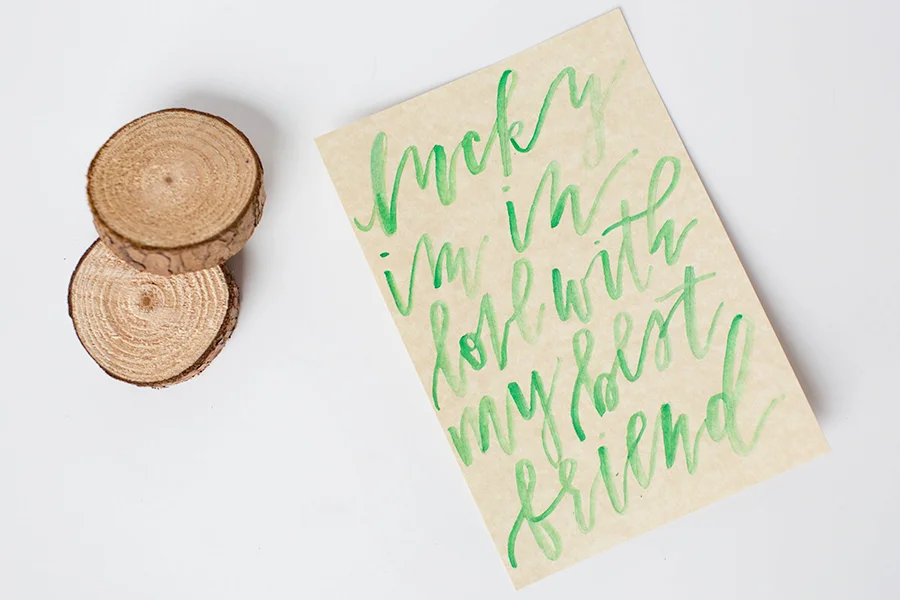 lucky
im in
love with
my best
friend